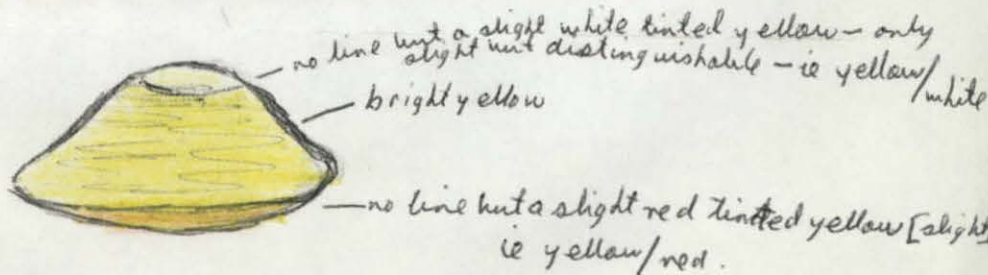 no line but a slight white tinted yellow - only
slight but distinguishable - ie yellow/
white
bright yellow
no line but a slight red tinted yellow [slight]
ie yellow/red.